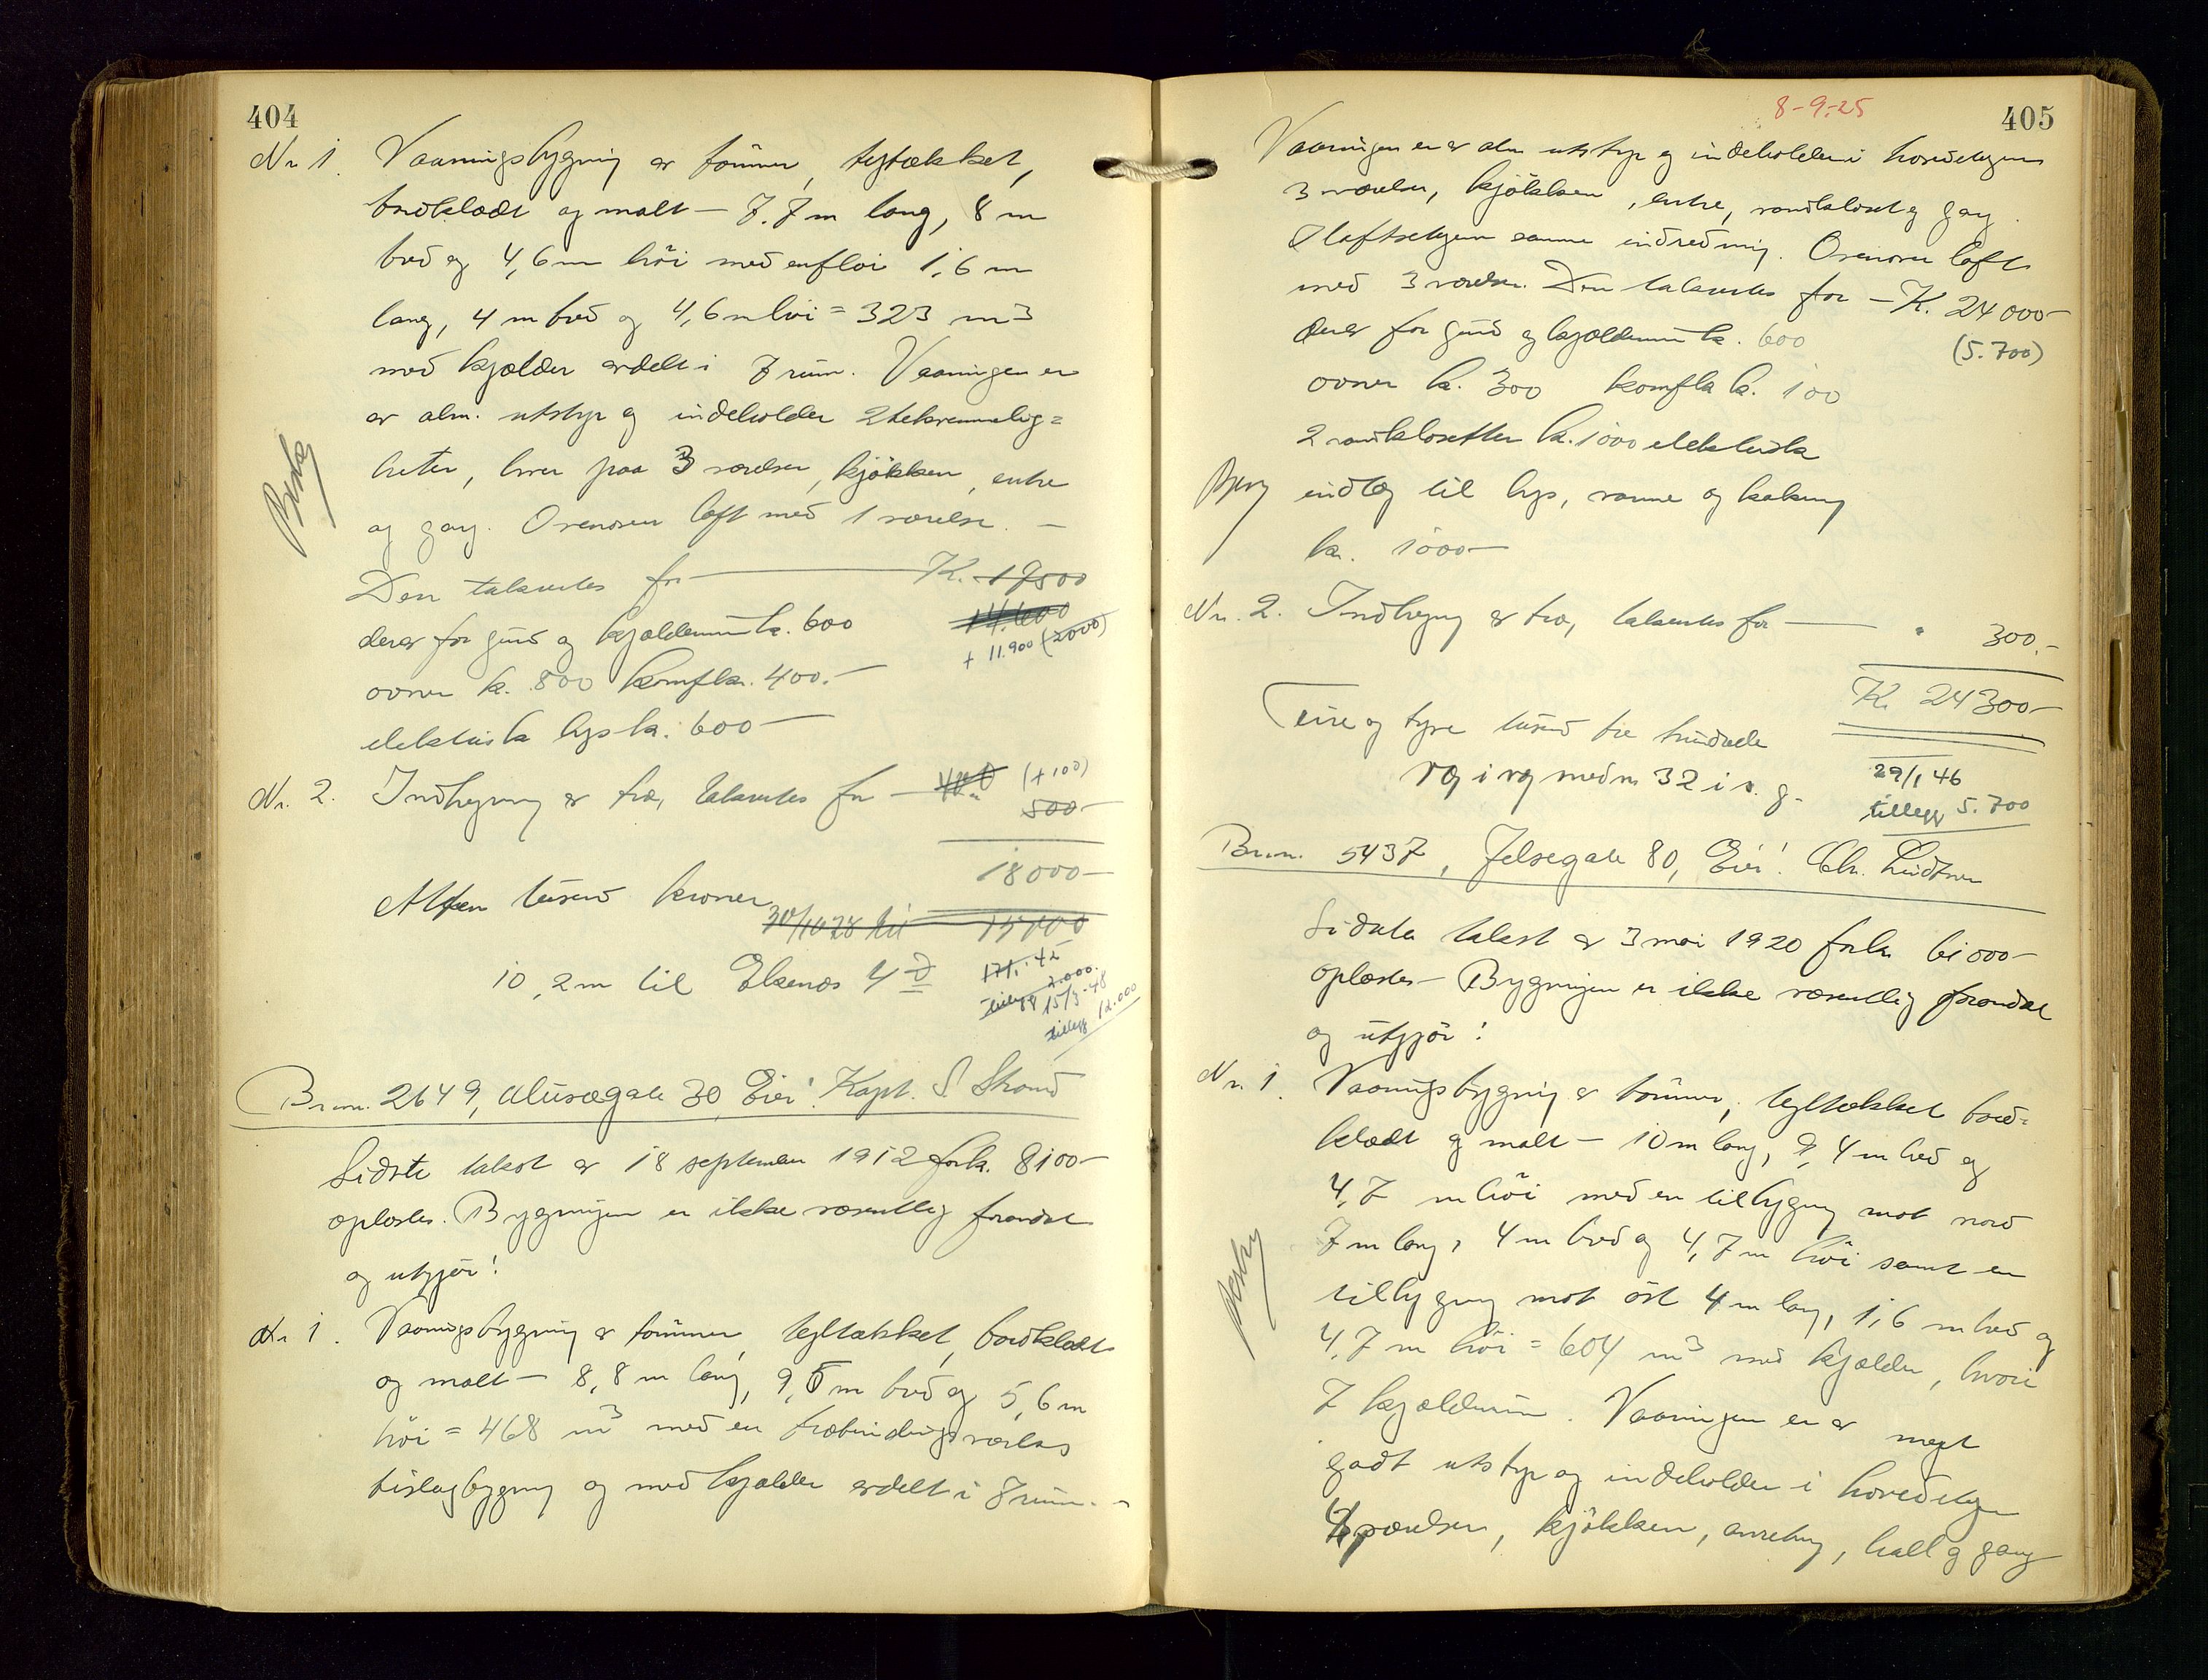 404
Nr 1. Vaaningsbygning av tømmer, tegltækket,
bordklædt og malt – 7.7 m lang, 8 m
bred og 4,6 m høi med en fløi 1,6 m
lang, 4 m bred og 4,6 m høi = 323 m³
med kjælder avdelt i 7 rum. Vaaningen er
av alm. utstyr og indeholder 2 bekvemmelig=
heter, hver paa 3 værelser, kjøkken, entre
og gang. Ovenover loft med 1 værelse. –
Den takseres for – K. 17500
14.600
derav for grund og kjælderrum k. 600
+ 11.900 (2000)
ovner k. 800 komf k. 400.–
elektrisk lys k. 600 –
Nr. 2. Indhegning av træ, takseres for – 400 (+100)
500 –
18000 –
Atten tusend kroner
30/10 28 til 15100
10,2 m til Ekenæs 4 d
17/1 42
tillegg 2.000.
15/3 - 48
tillegg 12.000
Br.nr. 2649, Musægate 30, Eier: Kapt. S. Strand
Sidste takst av 18 september 1912 for k. 8100 –
oplæstes. Bygningen er ikke væsentlig forandret
og utgjør:
Nr 1. Vaaningsbygning av tømmer, tegltækket, bordklædt
og malt – 8,8 m lang, 9,5 m bred og 5,6 m
høi = 468 m³ med en træbindingsverks
tilbygning og med kjælder avdelt i 7 rum. –
8-9-25
405
Vaaningen er av alm utstyr og indeholder i hovedetagen
3 værelser, kjøkken, entre, vandkloset og gang.
I loftsetagen samme indredning. Ovenover loft
med 3 værelser. Den takseres for – K. 24000 –
derav for grund og kjælderrum k. 600
(5.700)
ovner k. 300 komf k. 100
2 vandklosetter k. 1000 elektriske
Berg
indlæg til lys, varme og kokning
k. 1000 –
Nr. 2. Indhegning av træ, takseres for – " 300.–
K. 24300 –
Fire og tyve tusend tre hundrede
væg i væg med nr 32 i s. g.
29/1 46
tillegg 5.700
Br.nr. 5437, Jelsegate 80, Eier: Chr. Lindtner
Sidste takst av 3 mai 1920 for k. 61000 –
oplæstes – Bygningen er ikke væsentlig forandret
og utgjør:
Nr. 1. Vaaningsbygning av tømmer, tegltækket bord=
klædt og malt – 10 m lang, 9,4 m bred og
4,7 m høi med en tilbygning mot nord
7 m lang, 4 m bred og 4,7 m høi samt en
tilbygning mot øst 4 m lang, 1,6 m bred og
4,7 m høi = 604 m³ med kjælder, hvori
7 kjælderrum. Vaaningen er av meget
godt utstyr og indeholder i hovedetagen
4 værelser, kjøkken, anretning, hall og gang